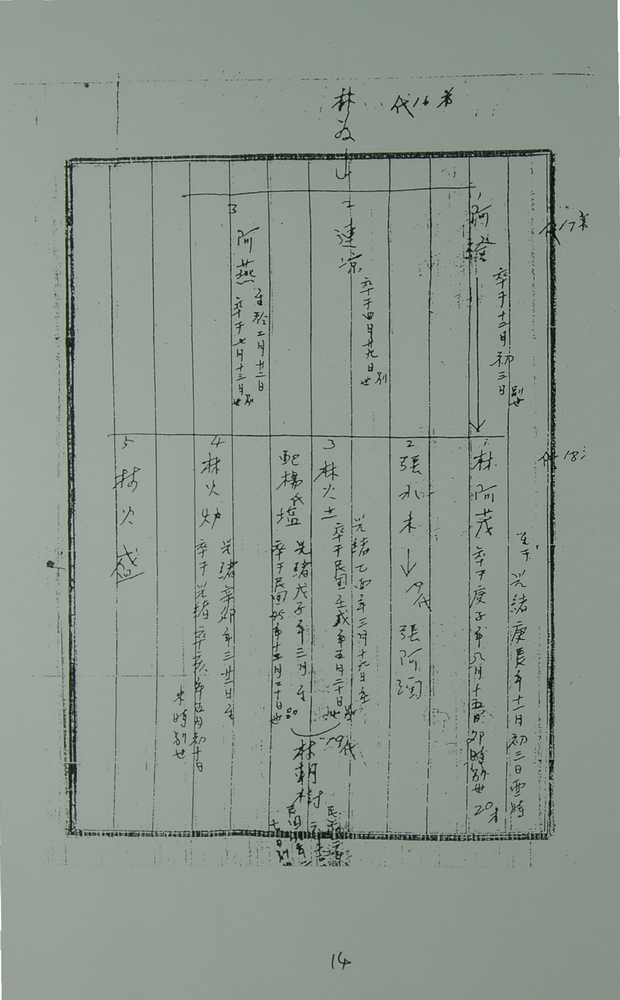 第16代
林為山
第17代
1 阿證
卒于十二月初三日別世
2 連凉
卒于四月廿九日別世
3 阿燕
生於二月廿二日
卒于七月十三日別世
第18代
1 林阿茂
生于光緒庚辰年十一月初三日酉時
卒于庚子年八月十五日卯時別世20才
2 張水來 → 19代 張阿
3 林火土
光緒乙酉年三月十九日生
卒于民國年五月二十日別世
配楊氏塩
光緒戊子年三月生
卒于民國年十二月二十日世
19代
林朝樹
4 林火炉
光緒辛卯年三廿二日生
卒于光緒年五月初十日
未時別世
5 林火盛
14